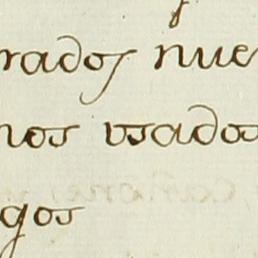 rados nue
nos usados
gos